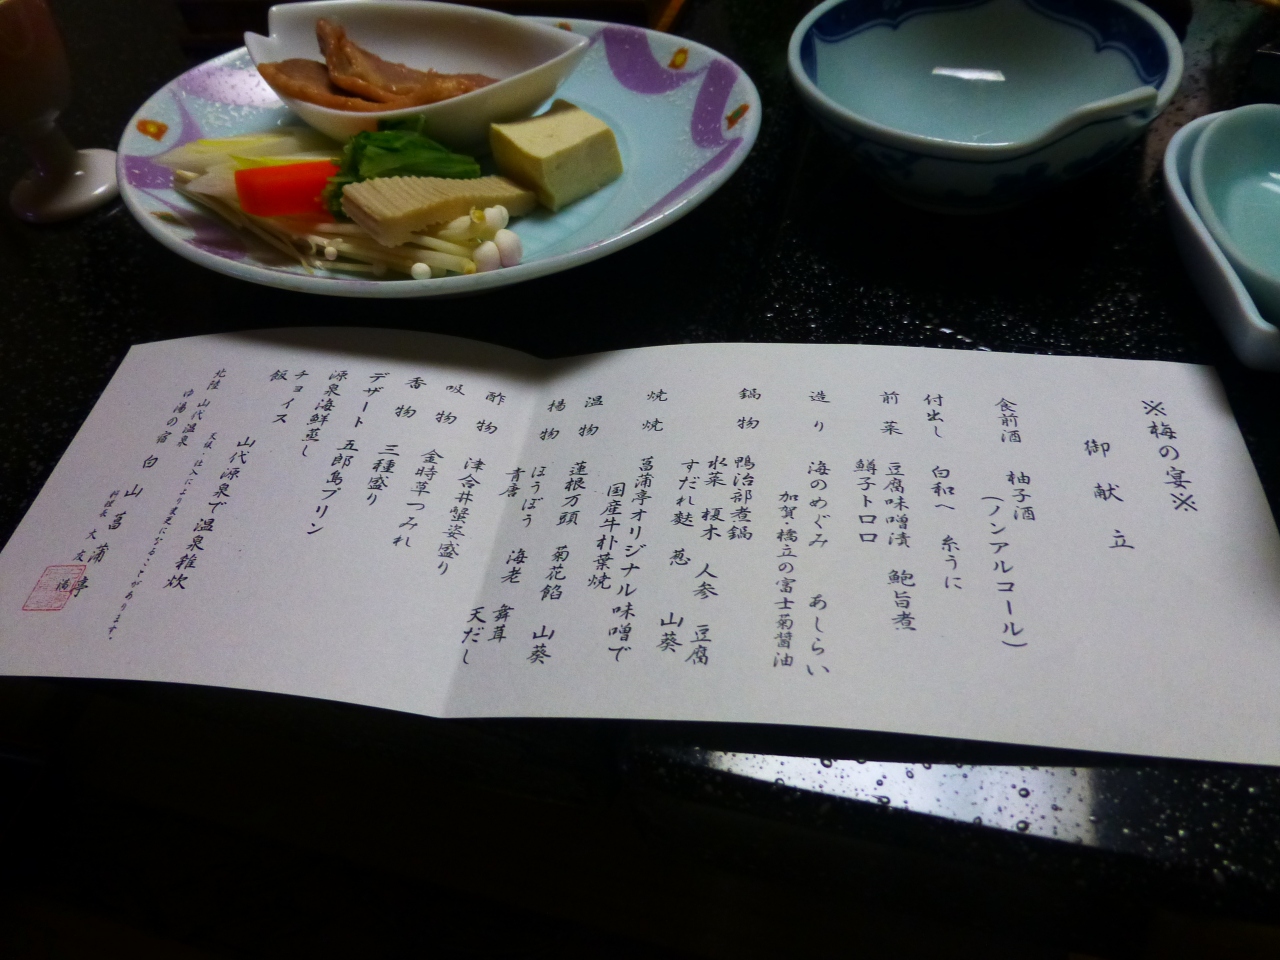 ※梅の宴※
御献立
食前酒 柚子酒
（ノンアルコール）
付出し 白和へ 糸うに
前菜 豆腐味噌漬 鮑旨煮
鱒子トロロ
造り 海のめぐみ あしらい
加賀・橋立の富士菊醤油
鍋物 鴨治部煮鍋
水菜 榎木 人参 豆腐
すだれ麩 葱 山葵
焼焼 菖蒲亭オリジナル味噌で
国産牛朴葉焼
温物 蓮根万頭 菊花餡 山葵
楊物 ほうぼう 海老 舞茸
青唐 天だし
酢物 津合井蟹姿盛り
吸物 金時草つみれ
香物 三種盛り
デザート 五郎島プリン
源泉海鮮蒸し
チョイス
飯 山代源泉で温泉雑炊
天候・仕入により変更になることがあります。
北陸 山代温泉
ゆ湯の宿 白山菖蒲亭
料理長 大友